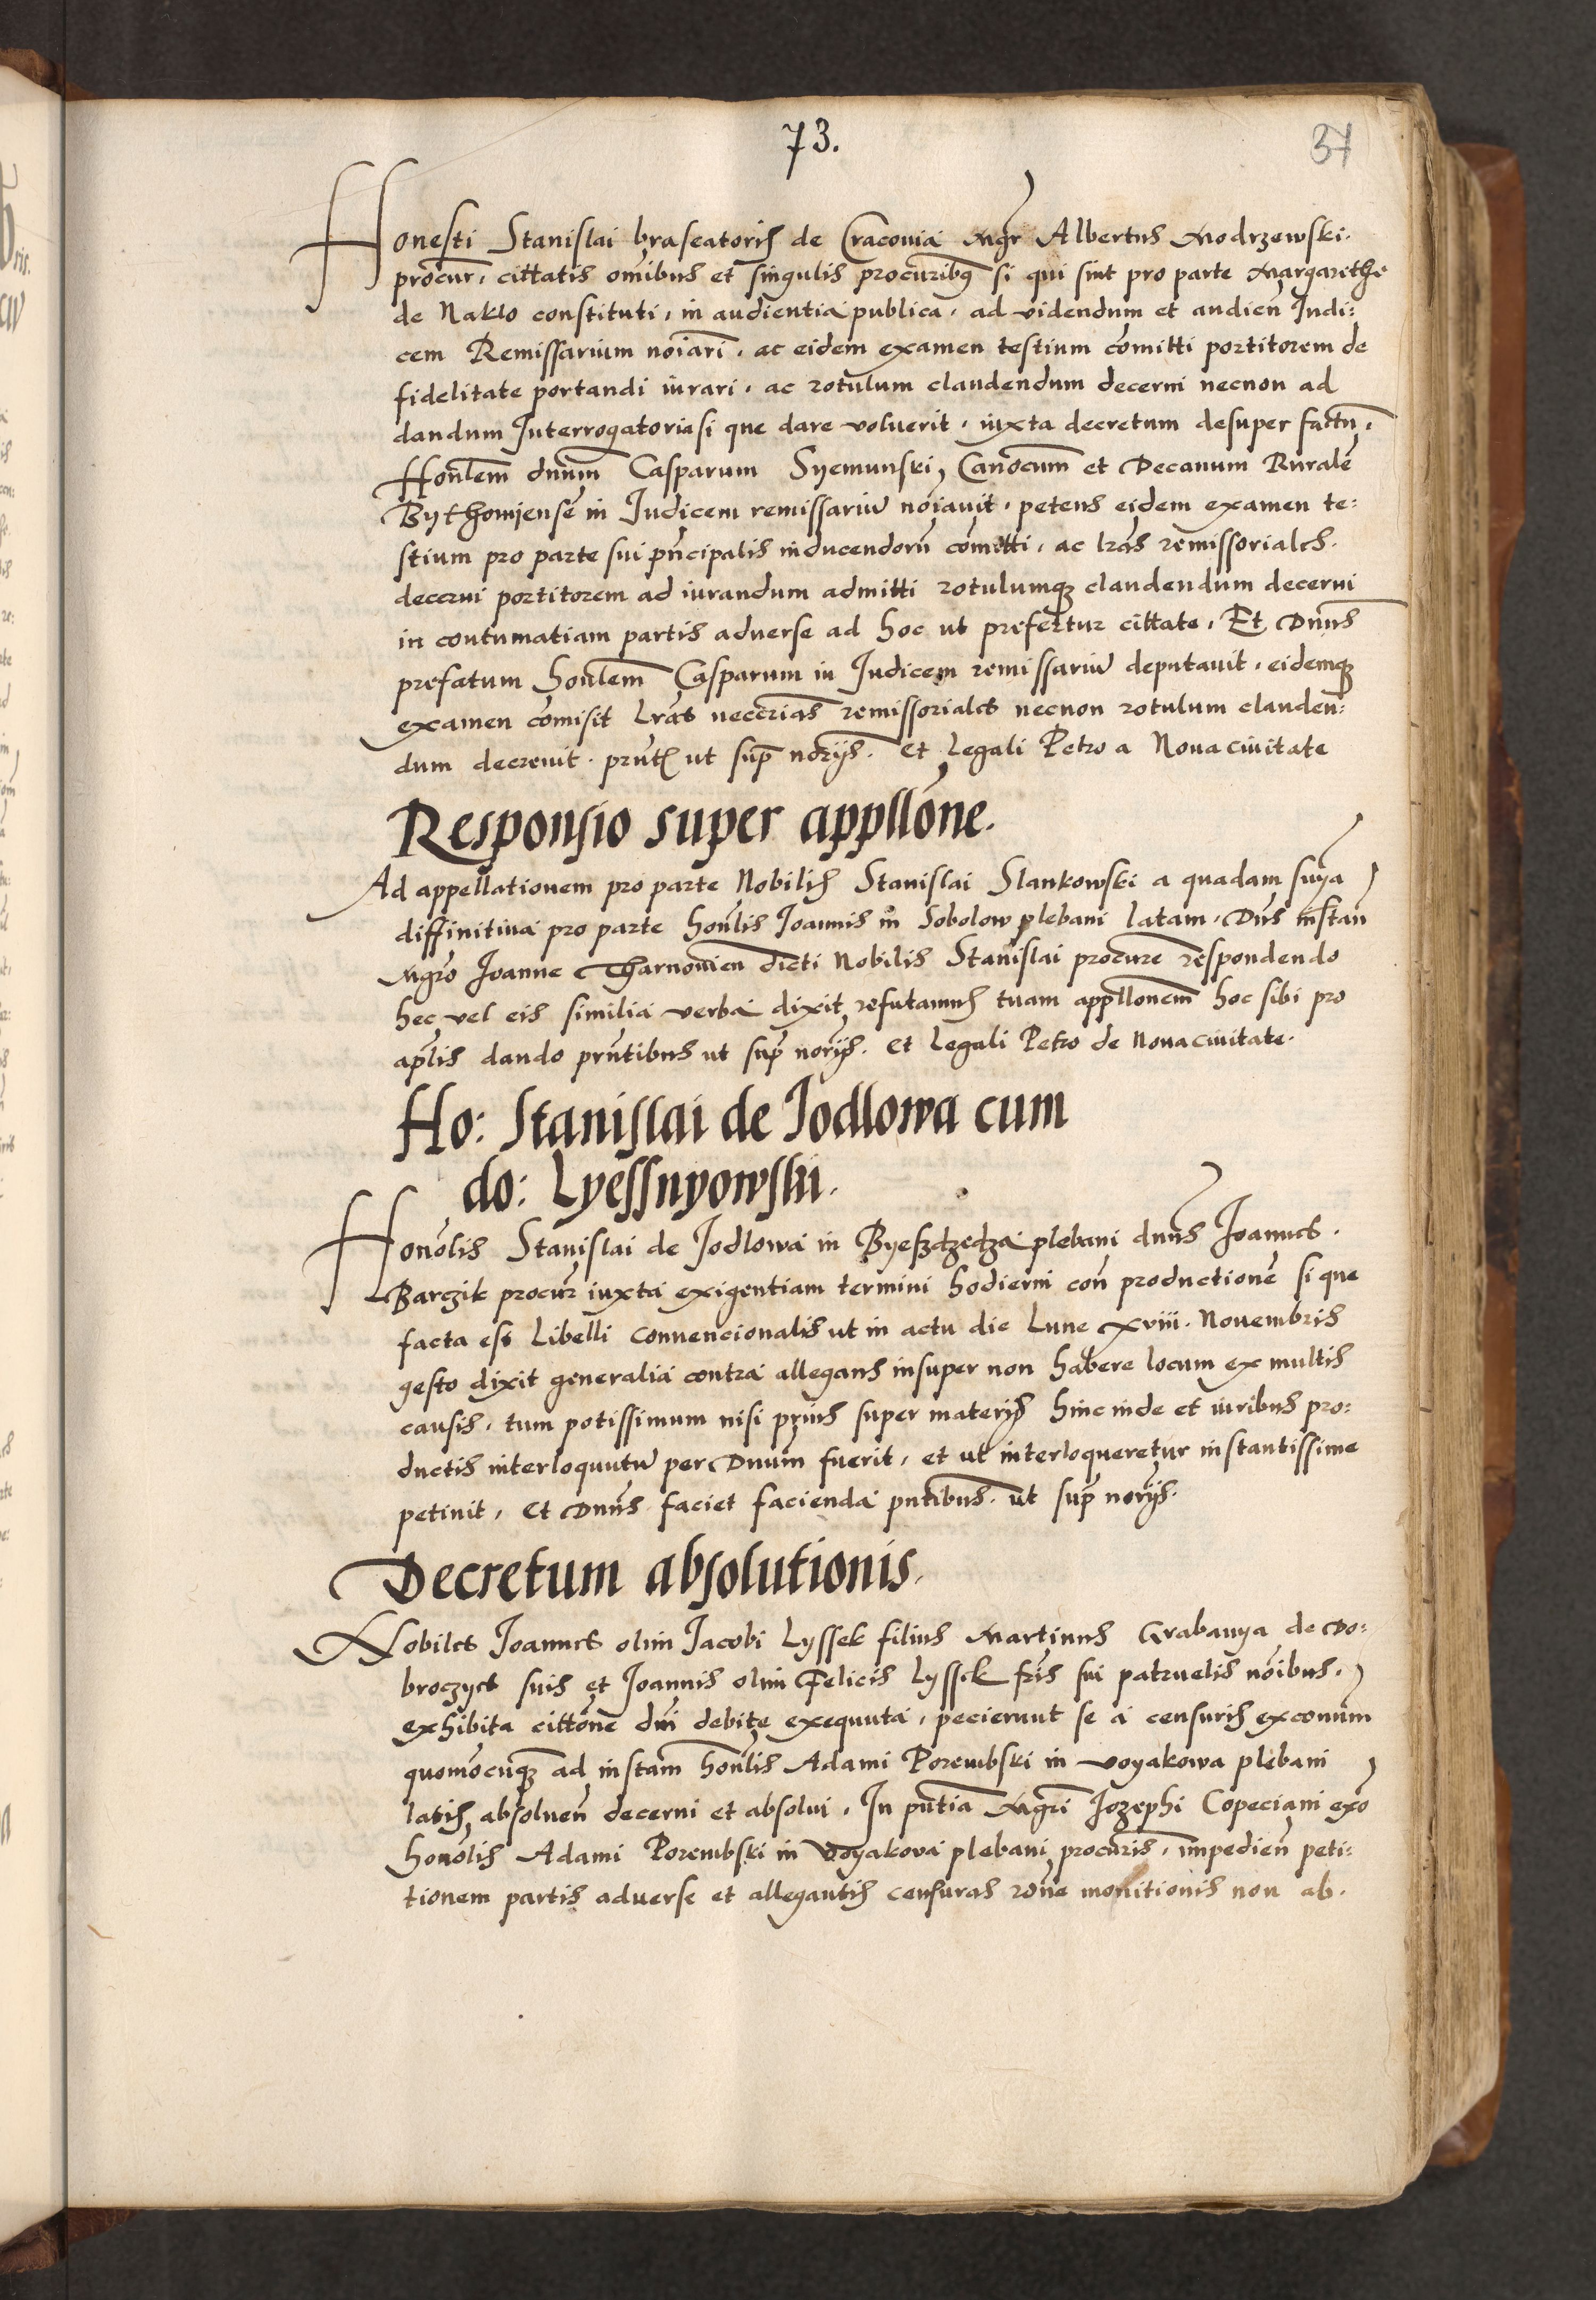 73.
37
Honesti Stanislai braseatoris de Cracovia Mgr Albertus Modrzewski.
procur. cittatis omibus et singulis procuribus si qui sint pro parte Margarethe
de Naklo constituti, in audientia publica, ad videndum et audien Iudi:
cem Remissarium noiari, ac eidem examen testium comitti portitorem de
fidelitate portandi iurari, ac rotulum claudendum decerni necnon ad
dandum Interrogatoria si que dare voluerit, iuxta decretum desuper factu,
Honlem dnum Casparum Syemunski, Canocum et Decanum Ruralē
Bythomiensē in Iudicem remissariū noiavit, petens eidem examen te:
stium pro parte sui pncipalis inducendorū comitti, ac lras remissoriales.
decerni portitorem ad iurandum admitti rotulumq claudendum decerni
in contumatiam partis adverse ad hoc ut prefertur cittate. Et Dnus
prefatum honlem Casparum in Iudicem remissariū deputavit, eidemq
examen comisit lras neccrias remissoriales necnon rotulum clauden:
dum decrevit. prntibus ut sup norijs. et legali Petro a Nova civitate
Responsio super appllōne.
Ad appellationem pro parte Nobilis Stanislai Slankowski a quadam snya
diffinitiva pro parte honlis Ioannis in Sobolow plebani latam, Dns instan
Mgro Ioanne Tharnovien dicti Nobilis Stanislai procure respondendo
hec vel eis similia verba dixit, refutamus tuam appllonem hoc sibi pro
aplis dando prntibus ut sup norijs. et legali Petro de Nova civitate.
Ho: Stanislai de Iodlowa cum
do: Lyessnyowski.
Honolis Stanislai de Iodlowa in Byeszdzedza plebani dnus Ioannes.
Barczik procur iuxta exigentiam termini hodierni con productionē si que
facta est libelli convencionalis ut in actu die Lune xviii. Novembris
gesto dixit generalia contra allegans insuper non habere locum ex multis
causis, tum potissimum nisi prius super materijs hinc inde et iuribus pro:
ductis interloquutū per Dnum fuerit, et ut interloqueretur instantissime
petivit, et Dnus faciet facienda pntibus. ut sup norijs.
Decretum absolutionis.
Nobiles Ioannes olim Iacobi Lyssek filius Martinus Grabanya de Do:
broczyes suis et Ioannis olim Felicis Lyssek fris sui patruelis noibus,
exhibita cittone dni debite exequuta, pecierunt se a censuris exconum
quomocuq ad instam honlis Adami Porembski in Voyakowa plebani
latis, absolven decerni et absolvi. In pntia Mgri Iozephi Copeciani exo
honolis Adami Porembski in Voyakova plebani procuris, impedien peti:
tionem partis adverse et allegantis censuras rone monitionis non ab.